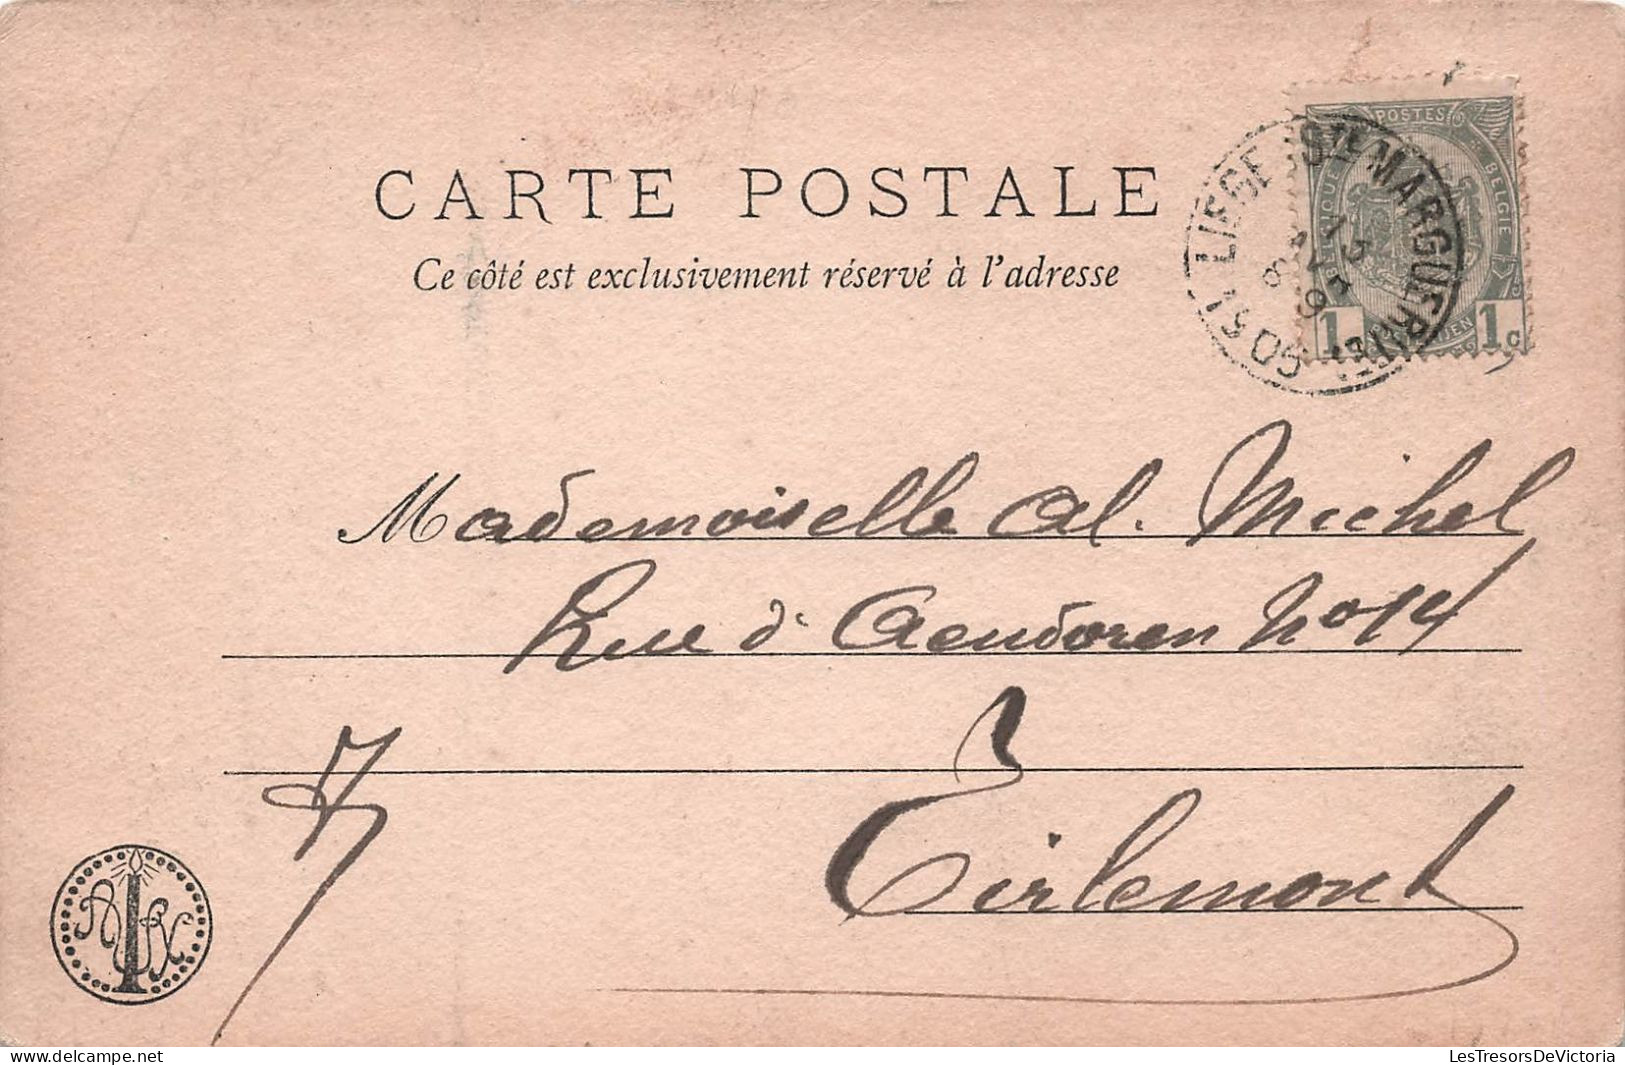 CARTE POSTALE
Ce côté est exclusivement réservé à l'adresse
LIEGE Ste MARGUERITE
1905
POSTES
BELGIE
1 1c
Mademoiselle Al. Michel
Rue d' Aendoren No 14
Tirlemont
LesTresorsDeVictoria
delcampe.net